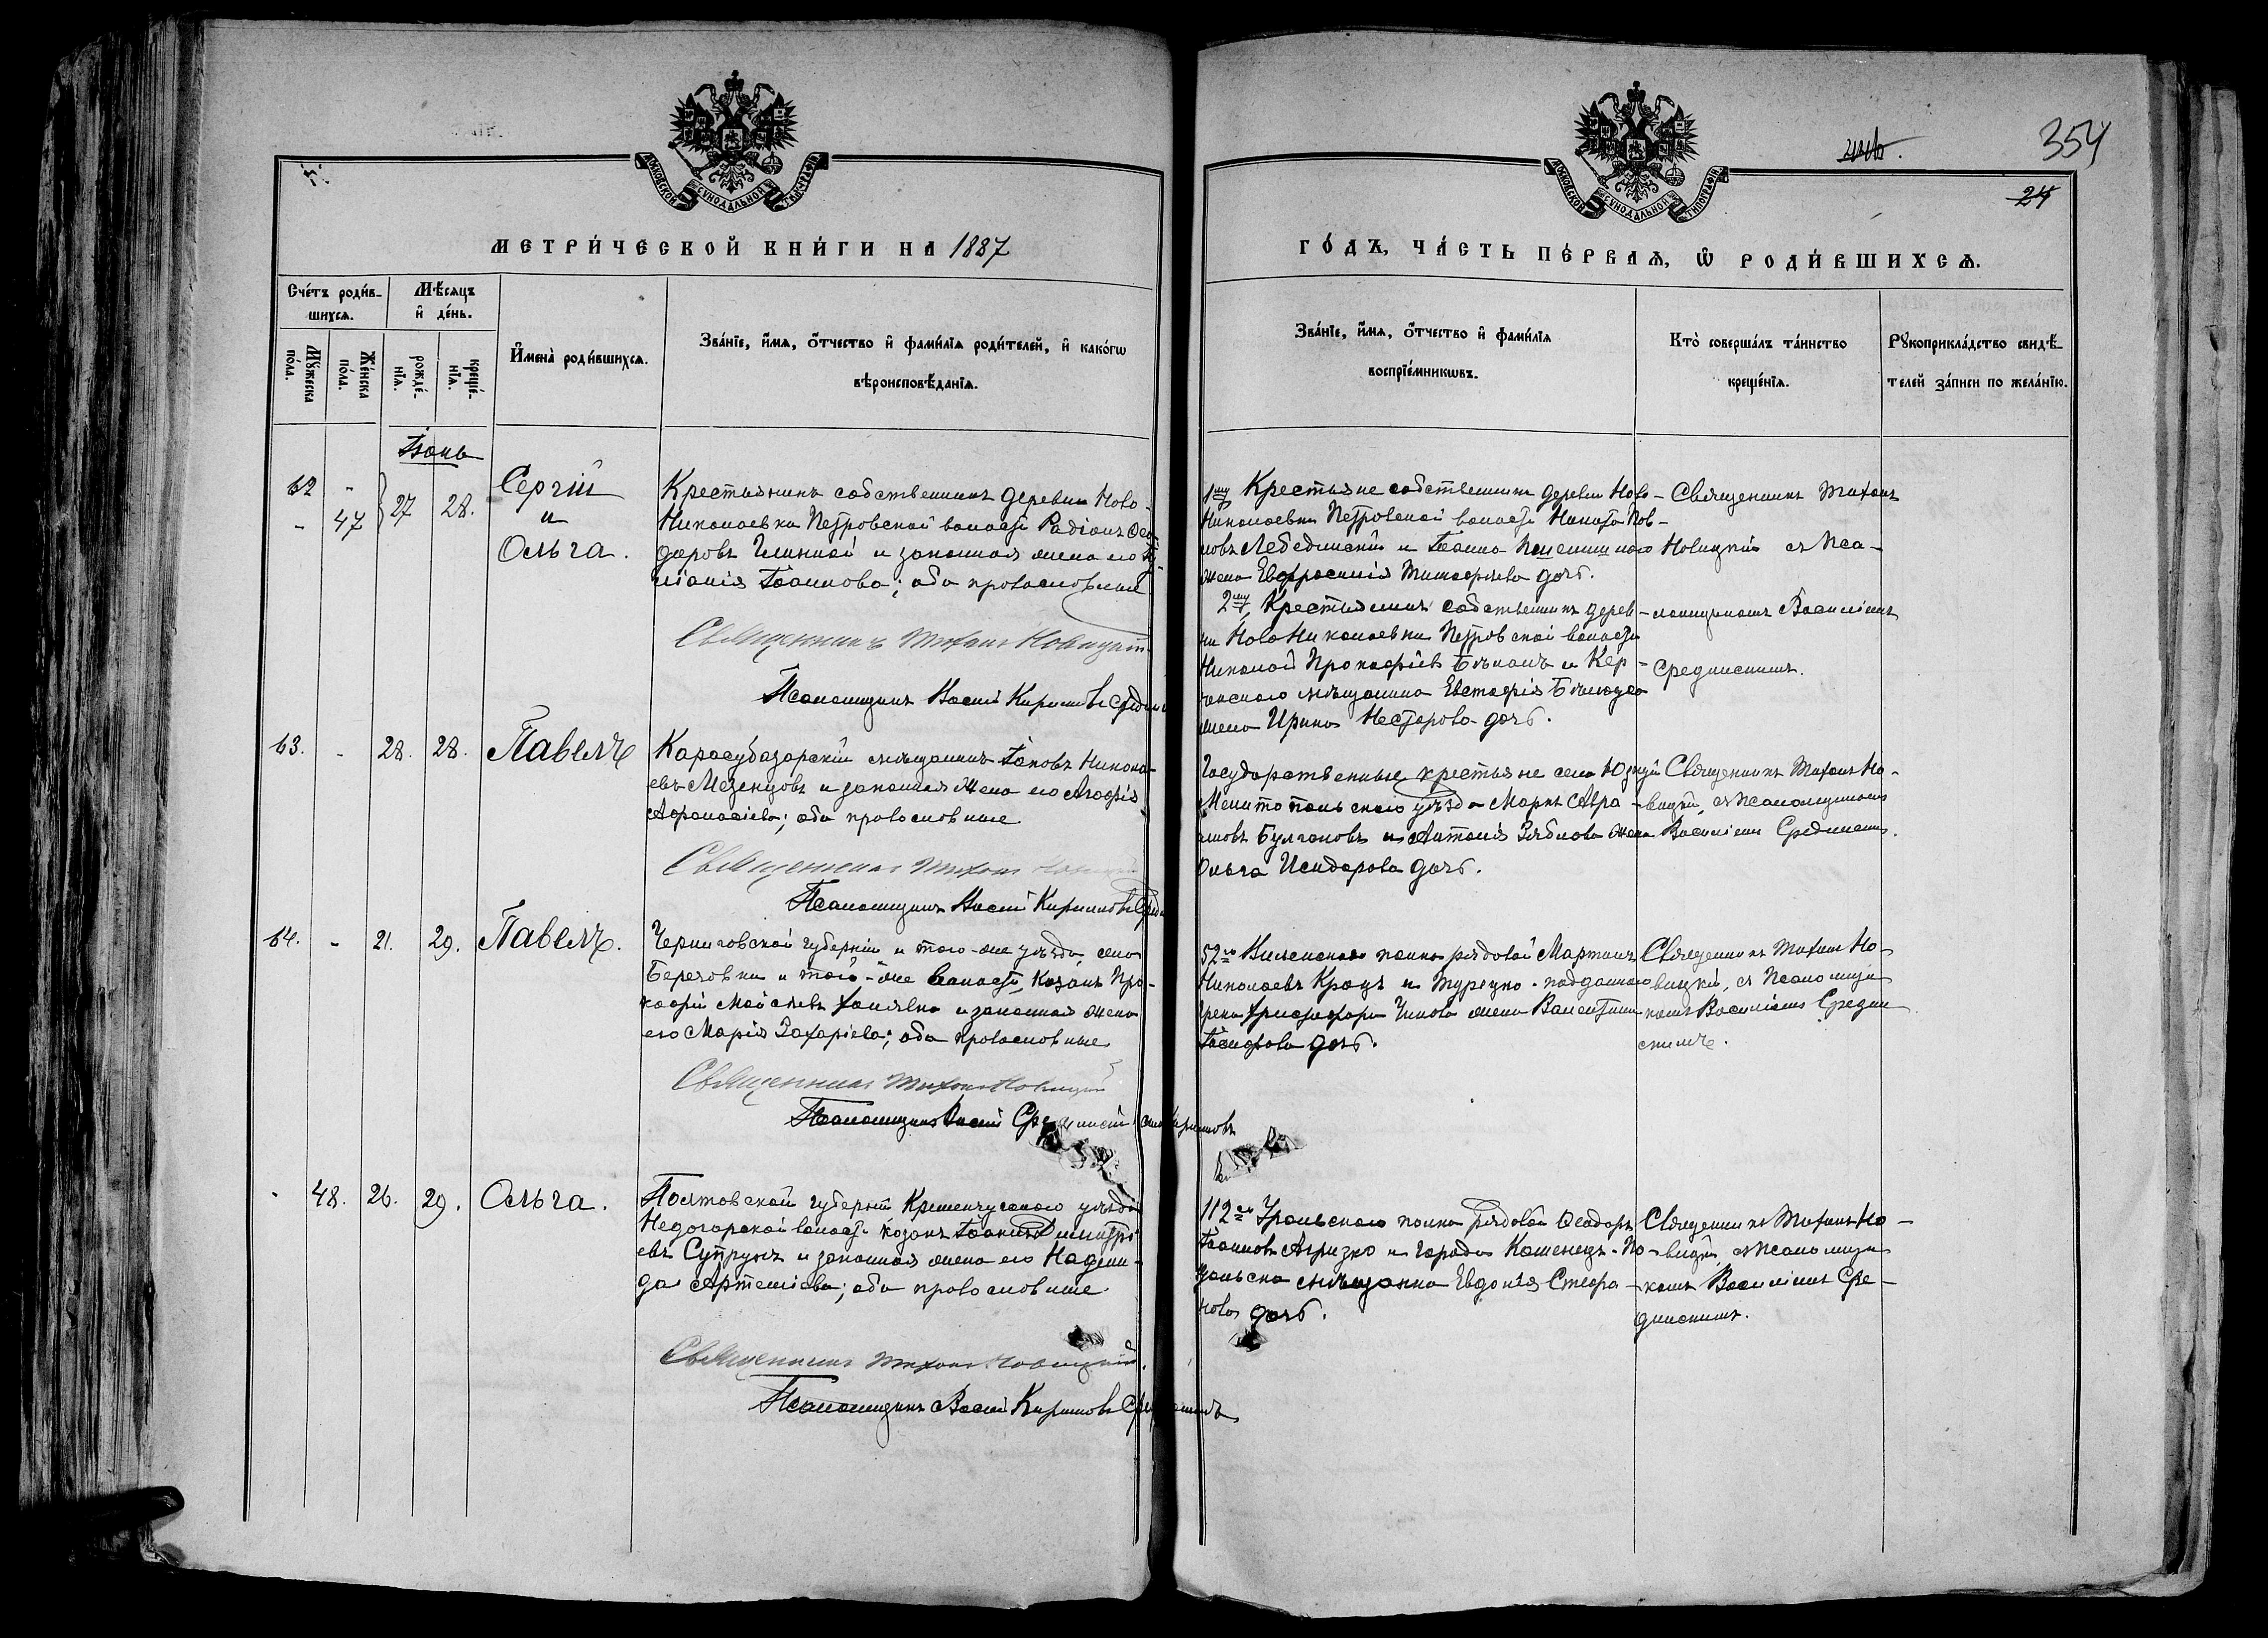 354
24
МЕТРИ́ЧЕСКОЙ КНИ́ГИ НА 1887
ГО́ДЪ, ЧА́СТЬ ПЕ́РВАЯ, Ѡ РОДИ́ВШИХСЯ.
МОСКОВСКОЙ СѴНОДАЛЬНОЙ ТИПОГРАФІИ
МОСКОВСКОЙ СѴНОДАЛЬНОЙ ТИПОГРАФІИ
Сче́тъ роди́в-
шихся.
Мꙋжеска
по́ла.
Же́нска
по́ла.
Мѣ́сяцъ
и҆ де́нь.
рожде́-
нїя.
креще́-
нїя.
И҆мена̀ роди́вшихся.
Зва́нїе, и҆́мя, ѻ҆́тчество и҆ фами́лїя роди́телей, и҆ како́гѡ
вѣроисповѣ́данїя.
Зва́нїе, и҆́мя, ѻ҆́тчество и҆ фами́лїя
воспрїе́мникѡвъ.
Кто̀ соверша́лъ та́инство
креще́нїя.
Рꙋкоприкла́дство свидѣ́-
телей за́писи по жела́нїю.
Іюнь
62 - 27 28. Сергій
- 47 и
Ольга.
Крестьянинъ собственникъ деревни Ново-
Николаевки Петровской волости Радіонъ Ѳео-
доровъ и законная жена его
Іоаннова; оба православные
Священникъ Тихонъ Новицкій
Псаломщикъ Василій Кирилловъ
1й Крестьяне собственники деревни Ново-
Николаевки Петровской волости Никита
Лебединскій и Іоанна
жена Евфросинія Тимофеева дочь.
2й Крестьянинъ собственникъ дерев-
ни Ново Николаевки Петровской волости
Николай Прокофіевъ и Кер-
ченскаго мѣщанина Евстафія
жена Ирина Несторова дочь.
Священникъ Тихонъ
Новицкій съ Пса-
ломщикомъ Василіемъ
Срединскимъ.
63. - 28. 28. Павелъ
Карасубазарскій мѣщанинъ Іаковъ Никола-
евъ Мезенцовъ и законная жена его Агафія
Афанасіева; оба православные
Священникъ Тихонъ
Псаломщикъ Василій Кирилловъ
Государственные крестьяне села
Мелитопольскаго уѣзда Маркъ Авра-
амовъ Булгаковъ и Антонія Зяблова жена
Ольга Исидорова дочь.
Священникъ Тихонъ Но-
вицкій, съ Псаломщикомъ
Василіемъ Срединскимъ.
64. - 21. 29. Павелъ.
Черниговской губерніи и того-же уѣзда, села
Березовки и той-же волости, козакъ Про-
кофій Моисеевъ и законная жена
его Марія Захаріева; оба православные
Священникъ Тихонъ Новицкій
Псаломщикъ Василій Срединскій Кирилловъ
52го Виленскаго полка рядовой Мартинъ
Николаевъ Кращъ и Турецко-подданнаго
грека Христофора жена Валентина
дочь.
Священникъ Тихонъ Но-
вицкій, съ Псаломщи-
комъ Василіемъ Средин-
скимъ.
48. 26. 29. Ольга.
Полтовской губерніи Кременчугскаго уѣзда
Недогарской волости козакъ Іоаннъ Димитрі-
евъ Супрунъ и законная жена его Надеж-
да Артеміева; оба православные
Священникъ Тихонъ Новицкій.
Псаломщикъ Василій Кирилловъ
112го Уральскаго полка рядовой Ѳеодоръ
Іоанновъ и города Каменецъ-По-
дольска мѣщанка Евдокія Стефа-
нова дочь.
Священникъ Тихонъ Но-
вицкій, съ Псаломщи-
комъ Василіемъ Сре-
динскимъ.